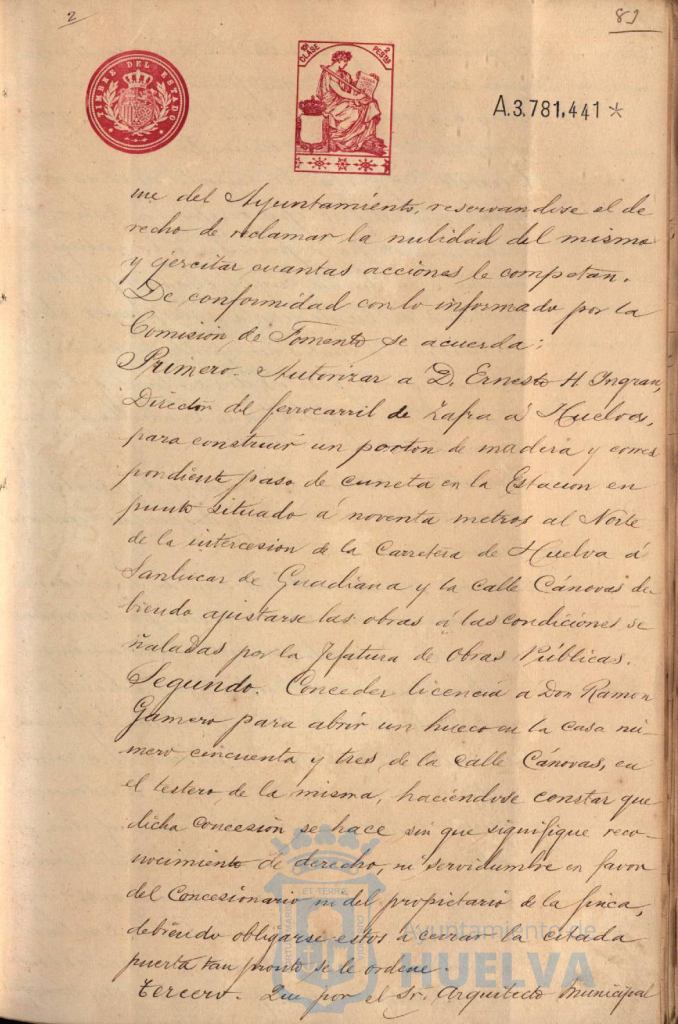 2
89
TIMBRE DEL ESTADO
10ª CLASE
2 PESTAS
A.3.781.441 *
me del Ayuntamiento, reservandose el de
recho de reclamar la nulidad del mismo
y ejercitar cuantas acciones le competan.
De conformidad con lo informado por la
Comisión de Fomento se acuerda:
Primero. Autorizar a D. Ernesto H Ingran,
Director del ferrocarril de Zafra á Huelva,
para construir un porton de madera y corres
pondiente paso de cuneta en la Estacion en
punto situado á noventa metros al Norte
de la intercesion de la Carretera de Huelva á
Sanlucar de Guadiana y la calle Cánovas de
biendo ajustarse las obras á las condiciones se
ñaladas por la Jefatura de Obras Públicas.
Segundo. Conceder licencia a Don Ramon
Gamero para abrir un hueco en la casa nú-
mero cincuenta y tres de la calle Cánovas, en
el testero de la misma, haciéndose constar que
dicha concesión se hace sin que signifique reco-
nocimiento de derecho, ni servidumbre en favor
del Concesionario ni del propietario de la finca,
debiendo obligarse estos a cerrar la citada
puerta tan pronto se le ordene.
Tercero. Que por el Sr. Arquitecto Municipal
Ayuntamiento de
HUELVA